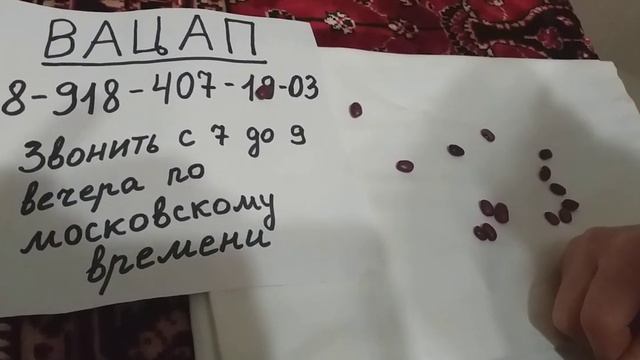 ВАЦАП
8-918-407-19-03
Звонить с 7 до 9
вечера по
московскому
времени